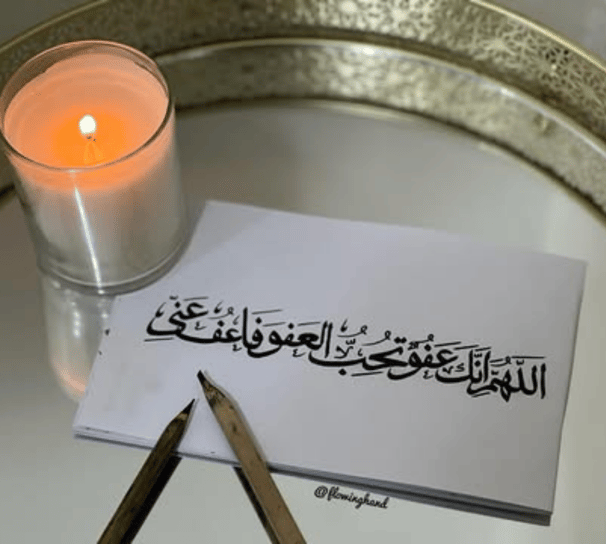 اللّهُمَّ إِنَّكَ عَفُوٌّ تُحِبُّ العَفوَ فَاعْفُ عَنِّي
@flowinghand